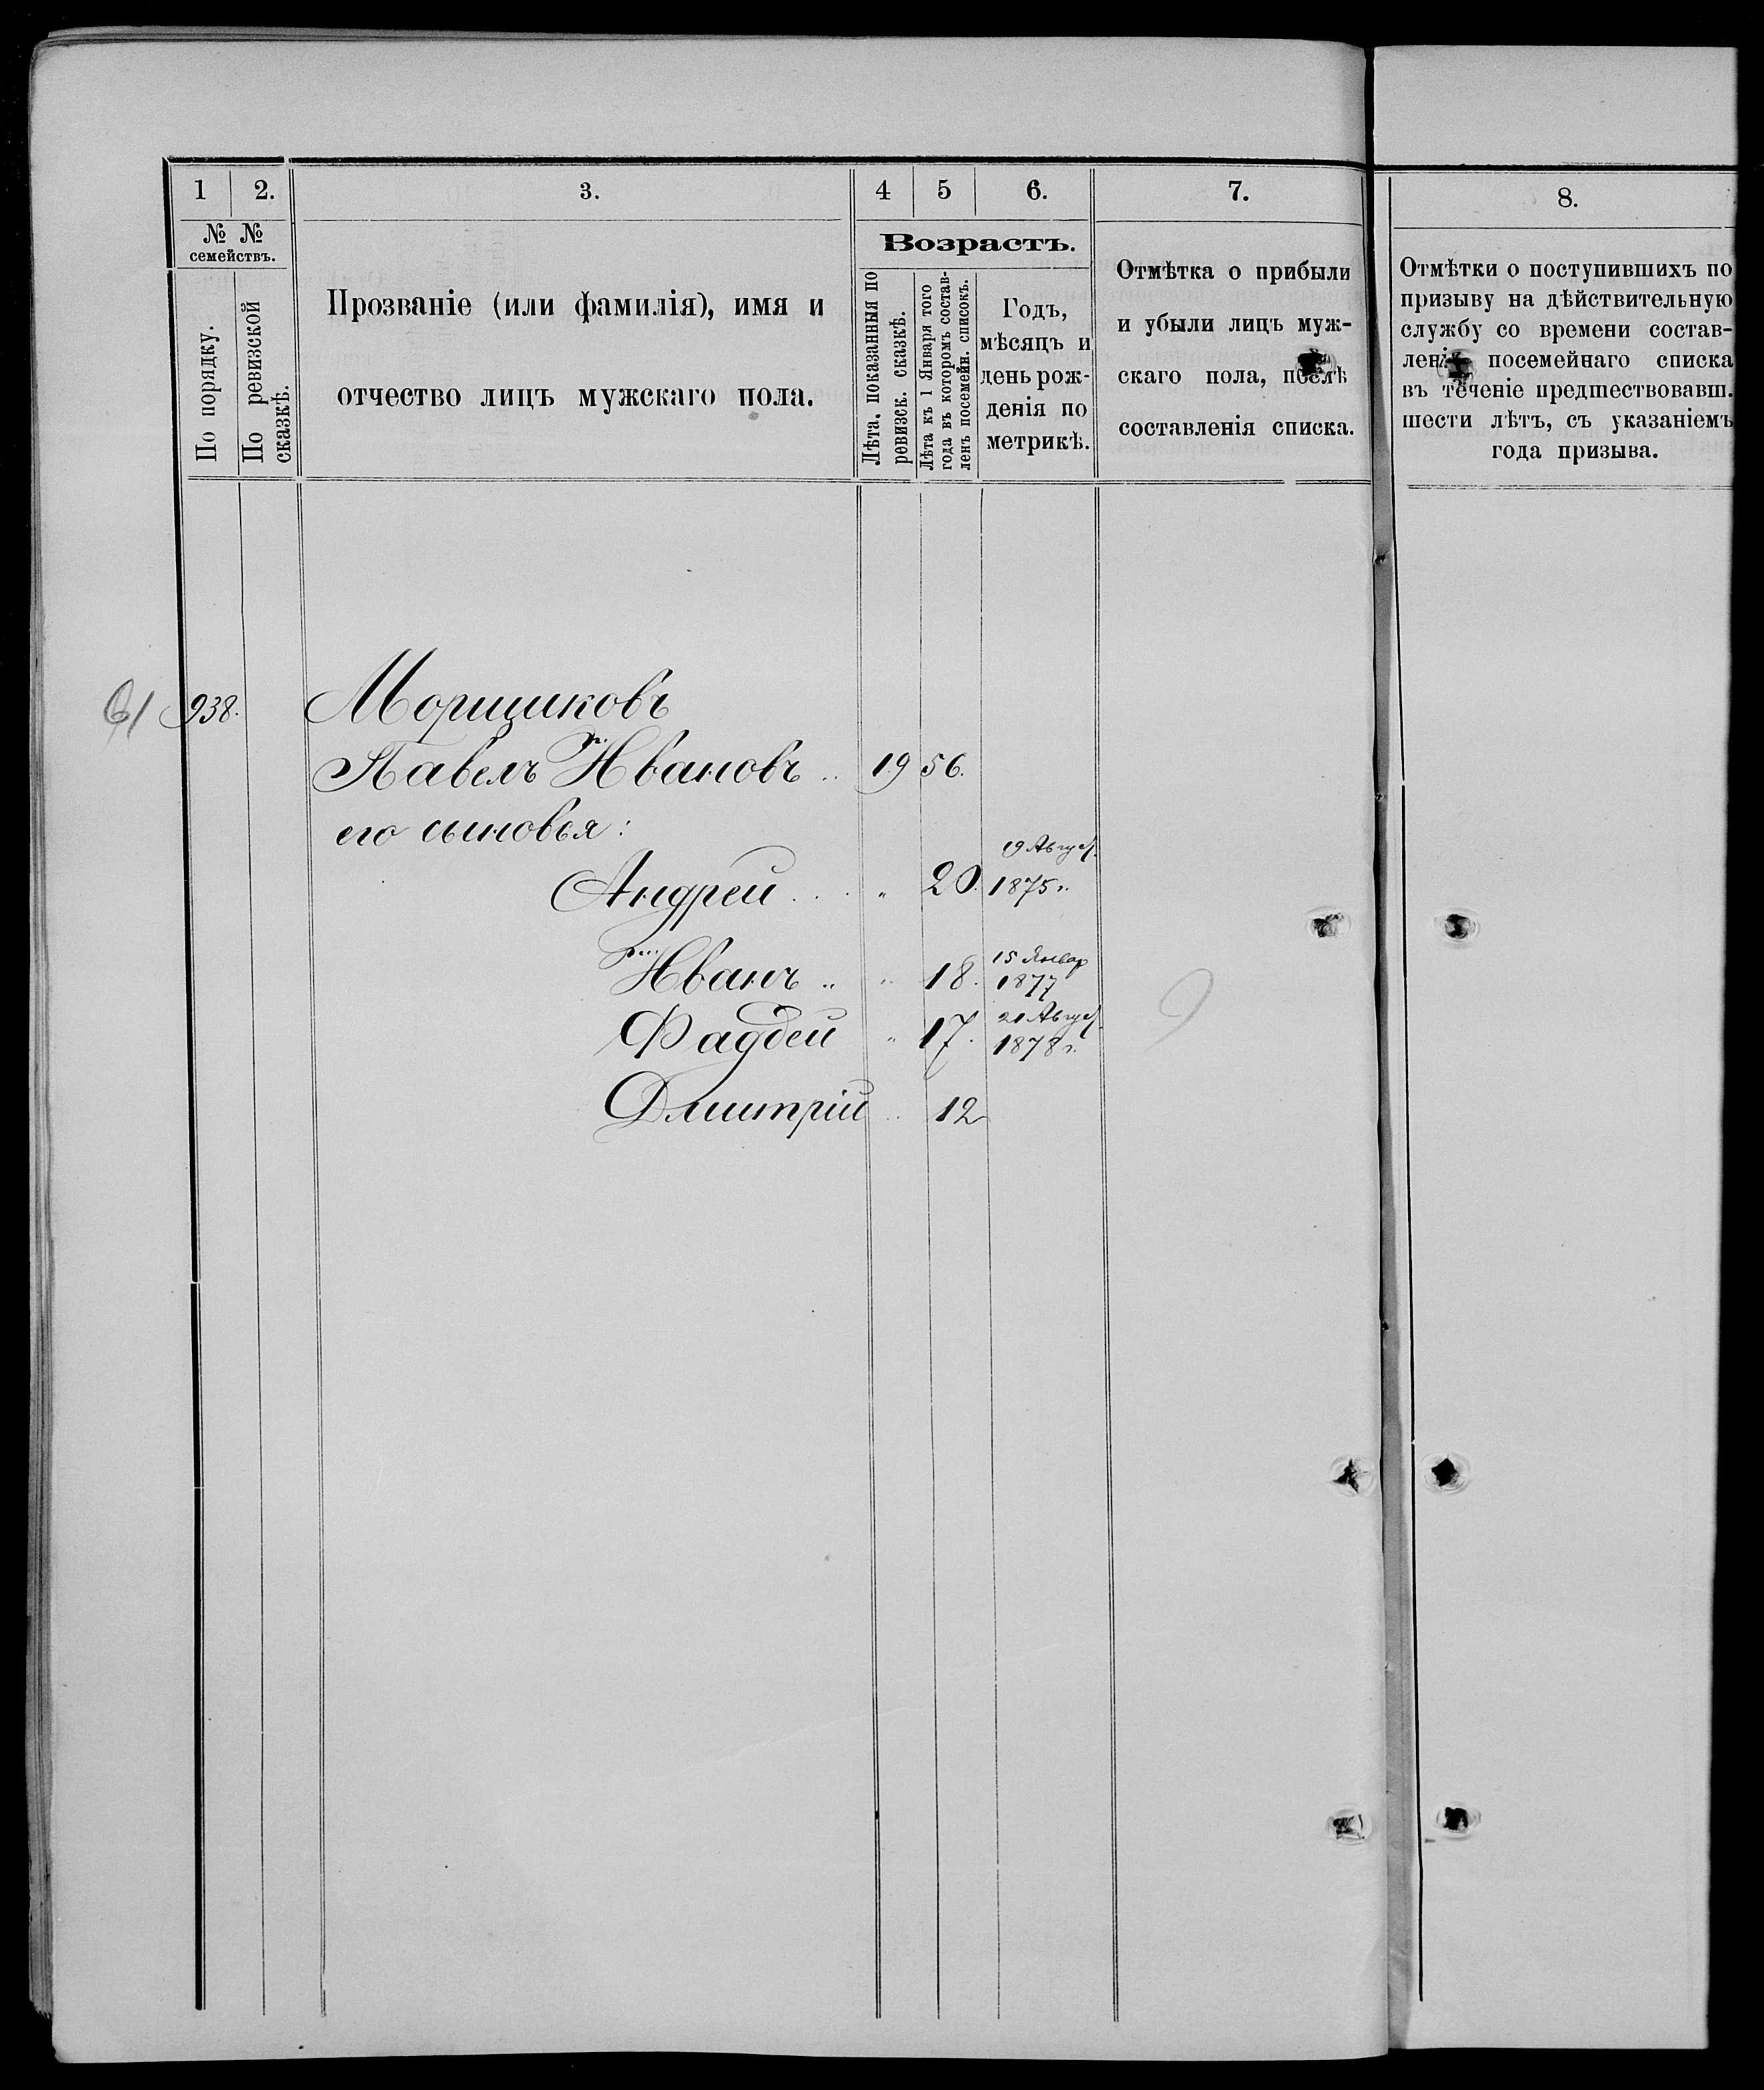 1 2. 3. 4 5 6. 7. 8.
№ №
семействъ.
По порядку.
По ревизской
сказкѣ.
Прозваніе (или фамилія), имя и
отчество лицъ мужскаго пола.
Возрастъ.
Лѣта, показанныя по
ревизск. сказкѣ.
Лѣта къ 1 Января того
года въ которомъ состав-
ленъ посемейн. списокъ.
Годъ,
мѣсяцъ и
день рож-
денія по
метрикѣ.
Отмѣтка о прибыли
и убыли лицъ муж-
скаго пола, послѣ
составленія списка.
Отмѣтки о поступившихъ по
призыву на дѣйствительную
службу со времени состав-
леніи посемейнаго списка
въ теченіе предшествовавш.
шести лѣтъ, съ указаніемъ
года призыва.
61 938. Морщиковъ
Павелъ Ивановъ .. 19 56.
его сыновья:
19 Авгус.
Андрей . . . " 20. 1875 г.
15 Январ
Иванъ .. " 18. 1877
21 Авгус.
Фаддей " 17. 1878 г.
Дмитрій .. 12